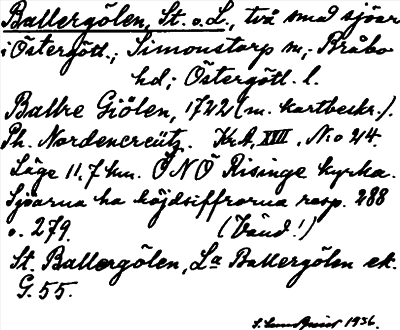 Ballergölen, St. o. L., två små sjöar
i Östergötl.; Simonstorp sn; Bråbo
hd; Östergötl. l.
Ballre Giölen, 1722 (m. kartbeskr.).
Ph. Nordencreütz. KrA, XVII, No 24.
Läge 11,7 km. ÖNÖ Risinge kyrka.
Sjöarna ha höjdsiffrorna resp. 288
o. 279. (Vänd!)
St. Ballergölen, La Ballergölen ek.
G. 55.
1936.